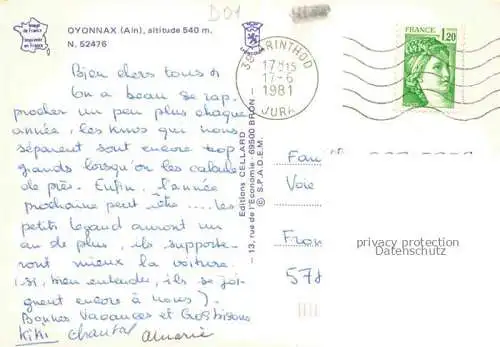 D01
Image de France
Imprimée en France
OYONNAX (Ain), altitude 540 m.
N. 52476
Bien chers tous
On a beau se rap.
procher un peu plus chaque
année, les kms qui nous
séparent sont encore trop
grands lorsqu'on les calcule
de près. Enfin, l'année
prochaine peut être .... les
petits Legaud auront un
an de plus, ils supporte-
ront mieux la voiture
(si, bien entendu, ils se joi-
gnent encore à nous).
Bonnes Vacances et Gros bisous
Kiki Chantal
Editions CELLARD
- 13, rue de l'Economie - 69500 BRON -
© S.P.A.D.E.M.
39 ARINTHOD
17H15
17-6
1981
JURA
FRANCE
1,20
Fam
Voie
Fron
57
privacy protection
Datenschutz